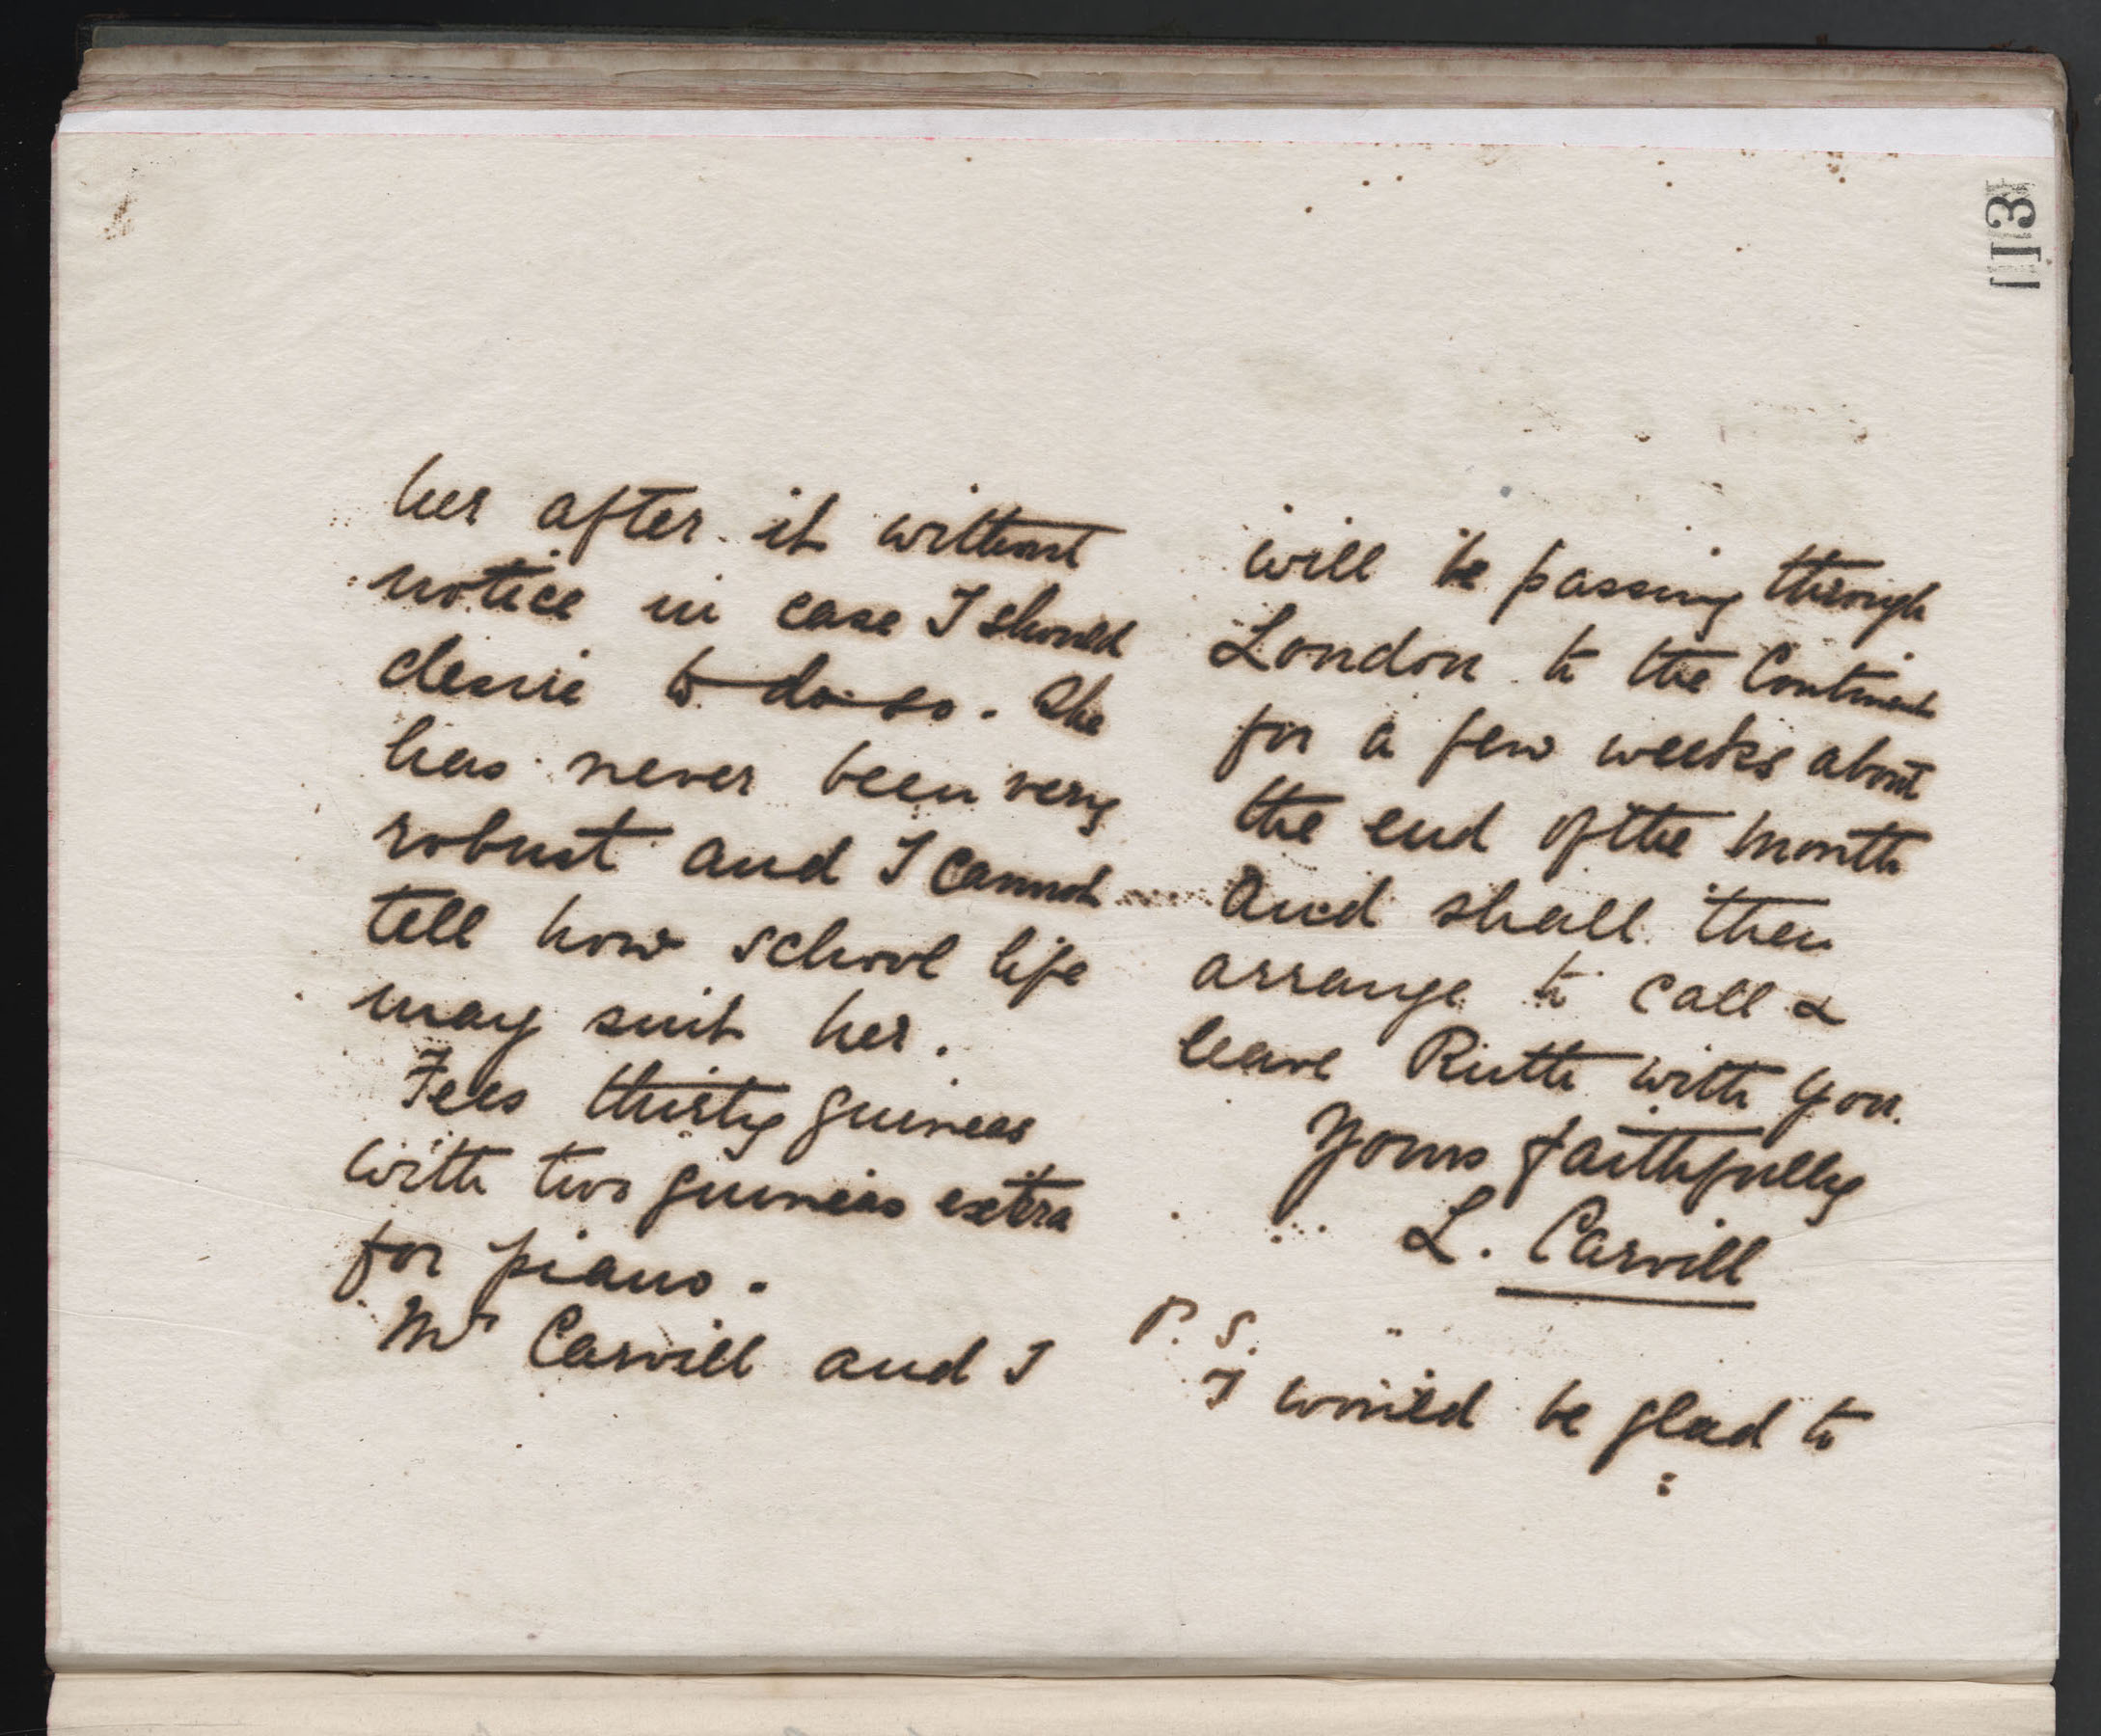 113
her after it without
notice in case I should
desire to do so. She
has never been very
robust and I cannot
tell how school life
may suit her.
Fees thirty guineas
with two guineas extra
for piano.
Mr Carvill and I
will be passing through
London to the Continent
for a few weeks about
the end of the month
and shall then
arrange to call &
leave Ruth with you.
Yours faithfully
L. Carvill
P. S.
I would be glad to